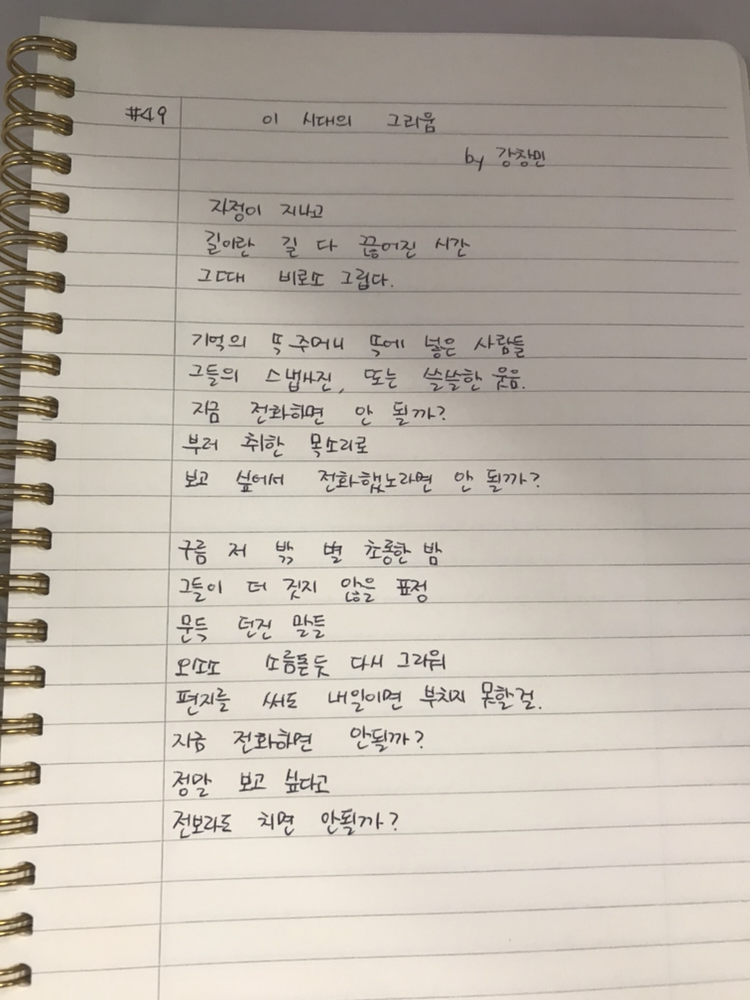 #49 이 시대의 그리움
by 강창민
자정이 지나고
길이란 길 다 끊어진 시간
그때 비로소 그립다.
기억의 뚝주머니 뚝에 넣은 사람들
그들의 스냅사진, 또는 쓸쓸한 웃음.
지금 전화하면 안 될까?
부러 취한 목소리로
보고 싶에서 전화했노라면 안 될까?
구름 저 밖 별 초롱한 밤
그들이 더 짓지 않을 표정
문득 던진 말들
오소소 소름돋듯 다시 그리워
편지를 써도 내일이면 부치지 못할걸.
지금 전화하면 안될까?
정말 보고 싶다고
전보라도 치면 안될까?